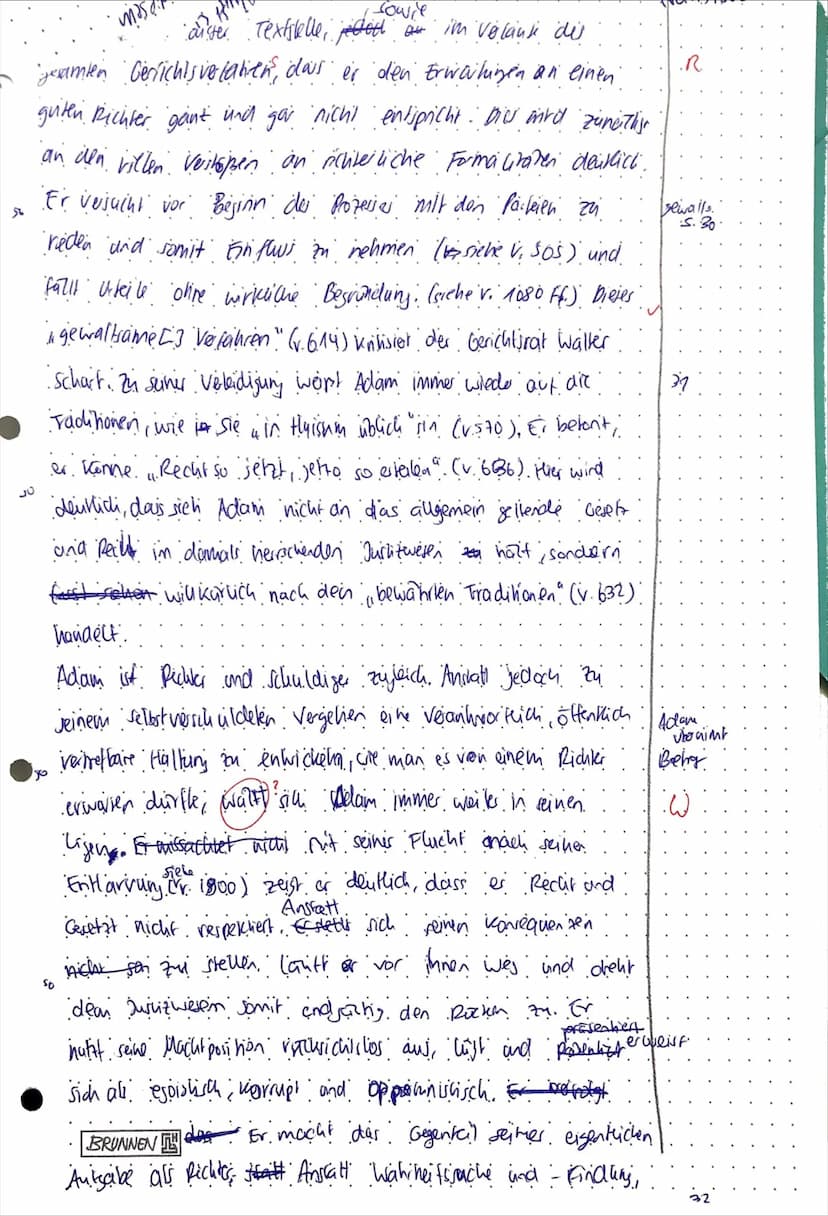 dieser Textstelle, ~~jedoch~~ ~~au~~ sowie im Verlauf des
gesamten Gerichtsverfahrens, dass er den Erwartungen an einen R
guten Richter ganz und gar nicht entspricht. Dies wird zunächst
an den vielen Verstößen an richterliche Formalitäten deutlich.
Er versucht vor Beginn des Prozesses mit den Parteien zu gewalts.
reden und somit Einfluss zu nehmen (siehe V. 505) und S. 30
fällt Urteile ohne wirkliche Begründung. (siehe V. 1080 ff.) Dieses
„gewaltsame[] Verfahren" (V. 614) kritisiert der Gerichtsrat Walter
scharf. Zu seiner Verteidigung weist Adam immer wieder auf die 31
Traditionen, wie sie „in Huisum üblich" sin (V. 570). Er betont,
er könne „Recht so jetzt, jetzo so erteilen". (V. 636). Hier wird
deutlich, dass sich Adam nicht an das allgemein geltende Gesetz
und Recht im damals herrschenden Justizwesen hält, sondern
willkürlich nach den „bewährten Traditionen" (V. 632)
handelt.
Adam ist Richter und Schuldiger zugleich. Anstatt jedoch zu
seinem selbstverschuldeten Vergehen eine verantwortlich, öffentlich Adam
vertretbare Haltung zu entwickeln, wie man es von einem Richter Betrug
erwarten dürfte, wälzt ? sich Adam immer weiter in seinen W
Lügen. ~~Er missachtet nicht~~ Mit seiner Flucht nach seiner
Entlarvung (siehe V. 1900) zeigt er deutlich, dass er Recht und
Gesetzt nicht respektiert. Anstatt ~~Er stellt~~ sich seinen Konsequenzen
~~nicht~~ zu stellen, läuft er vor ihnen weg und dreht
dem Justizwesen somit endgültig den Rücken zu. Er
nutzt seine Machtposition rücksichtslos aus, lügt und ~~präsentiert~~ erweist
sich als egoistisch, korrupt und opportunistisch.
BRUNNEN ~~das~~ Er macht das Gegenteil seiner eigentlichen
Aufgabe als Richter, ~~statt~~ Anstatt Wahrheitssuche und -findung,
32